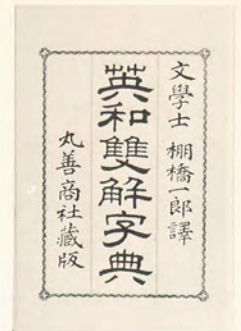 文學士 棚橋一郎譯
英和雙解字典
丸善商社藏版